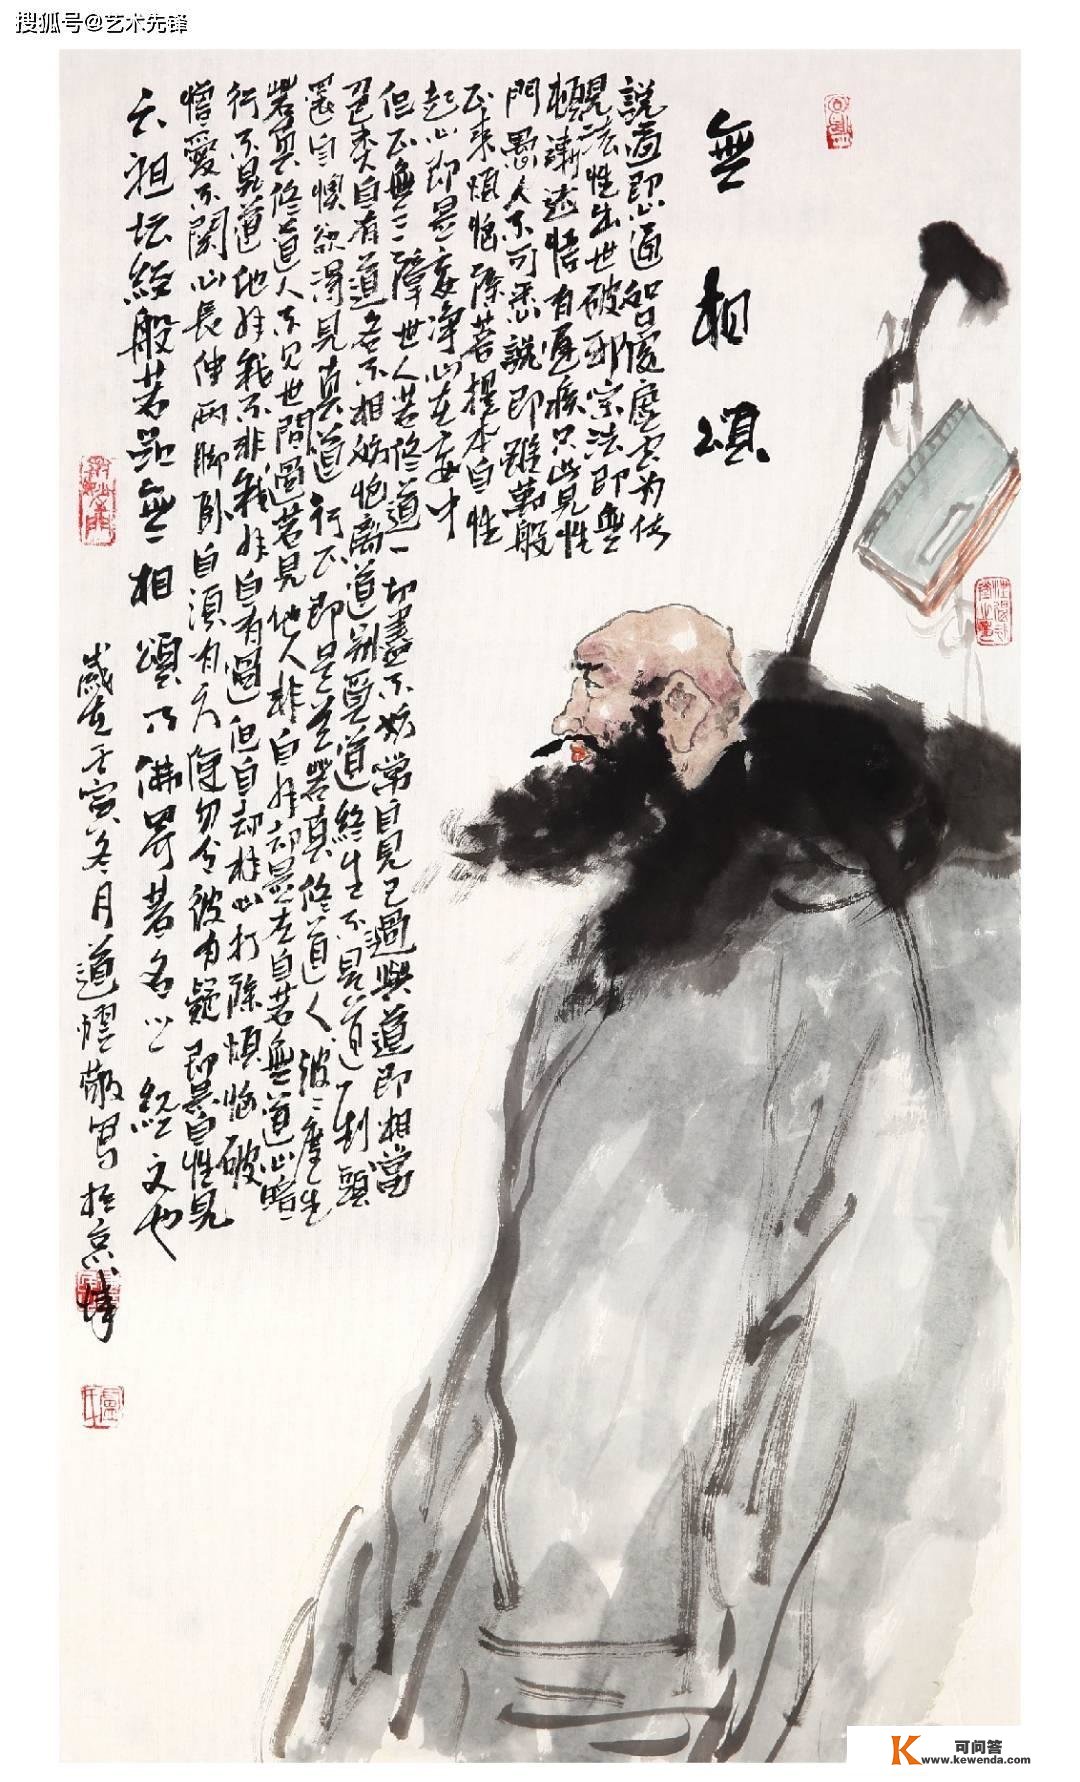 搜狐号@艺术先锋
無相頌
說通即心通如日處虛空为传
見法性出世破邪宗法即無
頓漸迷悟有遲疾只此見性
門愚人不可悉說即雖萬般
正来煩惱除菩提本自性
起心即是妄淨心在妄中
但正無三障世人若修道一切盡不妨常自見己過與道即相當
色类自有道各不相妨惱離道别覓道終生不見道
還自懊欲得見真道行正即是道若真修道人波波度生
若真修道人不见世間過若見他人非自非却是左自若無道心暗
行不見道他非我不非我非自有過但自却非心打除煩惱破
憎愛不關心長伸两脚卧自須有方便勿令彼有疑即是自性見
六祖坛经般若品無相頌乃佛界著名之經文也
歲在壬寅冬月道耀敬写於京
可问答
www.kewenda.com